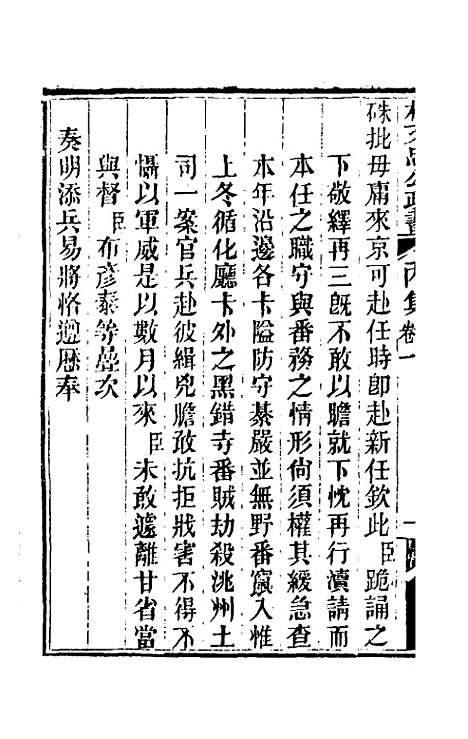 林文忠公政書 丙集卷一
硃批毋庸來京可赴任時卽赴新任欽此臣跪誦之
下敬繹再三旣不敢以瞻就下忱再行瀆請而
本任之職守與番務之情形尙須權其緩急查
本年沿邊各卡隘防守綦嚴並無野番竄入惟
上冬循化廳卡外之黑錯寺番賊劫殺洮州土
司一案官兵赴彼緝兇膽敢抗拒戕害不得不
懾以軍威是以數月以來臣未敢遽離甘省當
與督臣布彥泰等疊次
奏明添兵易將恪遵歷奉